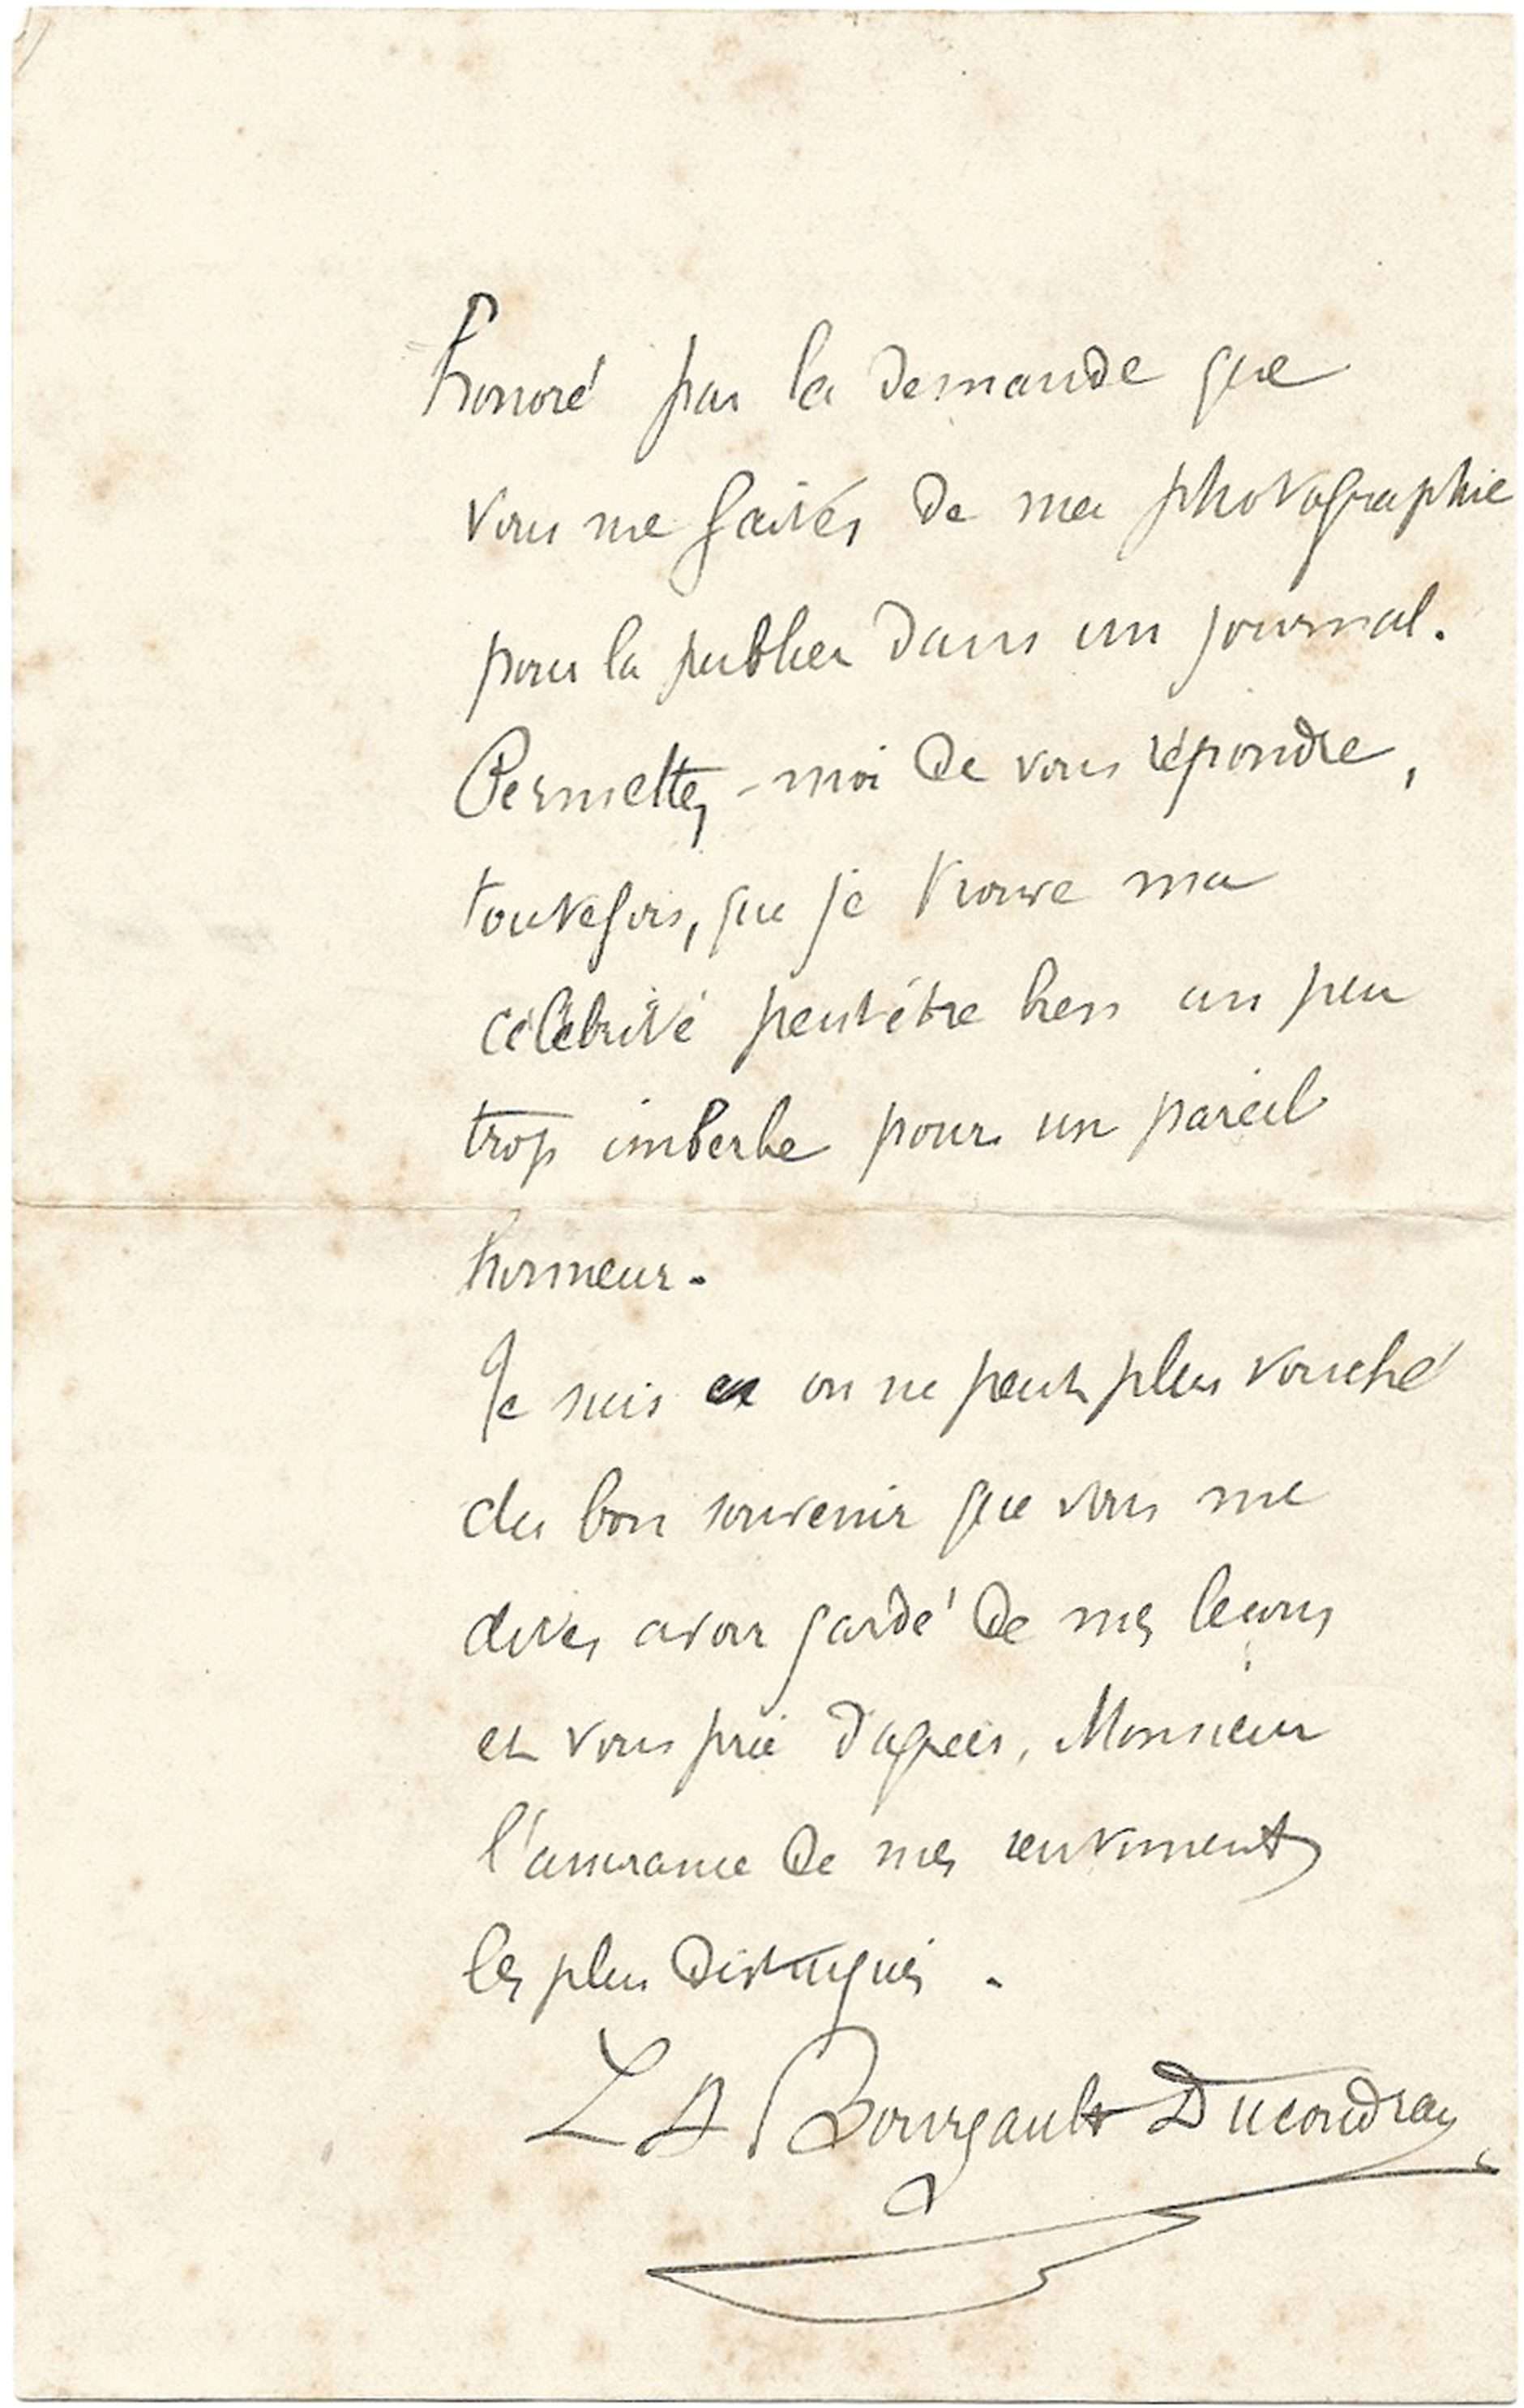 honoré par la demande que
vous me faites de ma photographie
pour la publier dans un journal.
Permettez-moi de vous répondre,
toutefois, que je trouve ma
célébrité peut être bien un peu
trop imberbe pour un pareil
honneur.
Je suis on ne peut plus touché
du bon souvenir que vous me
dites avoir gardé de mes leçons
et vous prie d'agréer, Monsieur
l'assurance de mes sentiments
les plus distingués.
L A Bourgault Ducoudray